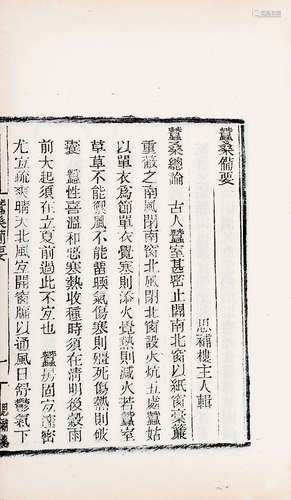 蠶桑備要
思補樓主人輯
蠶桑總論 古人蠶室甚密止開南北窗以紙窗藁簾
重蔽之南風閉南窗北風閉北窗設火炕五處蠶姑
以單衣爲節單衣覺寒則添火覺熱則減火若蠶室
草草不能禦風不能留暖氣傷寒則殭死傷熱則破
囊 蠶性喜溫和惡寒熱收種時須在清明後穀雨
前大起須在立夏前過此不宜也 蠶房固宜邃密
尤宜疏爽晴天北風宜開窗牖以通風日舒鬱氣下
蠶桑備要
一
思補樓